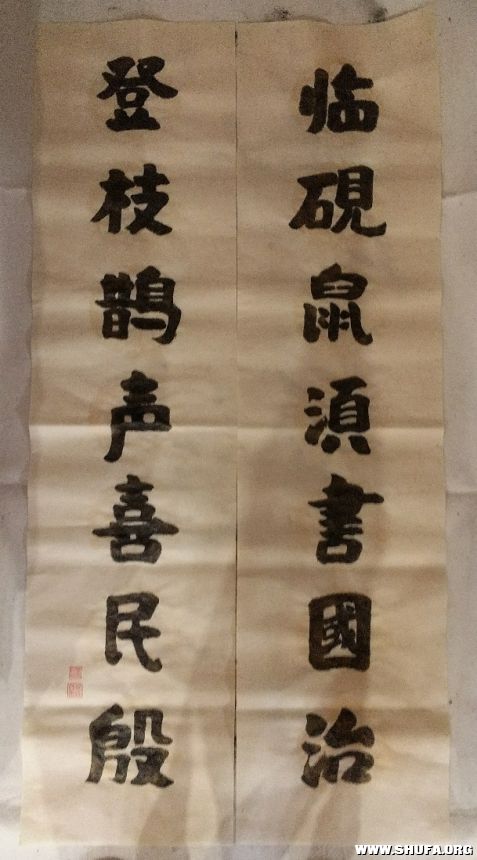 临砚鼠須書國治
登枝鹊声喜民殷
WWW.SHUFA.ORG